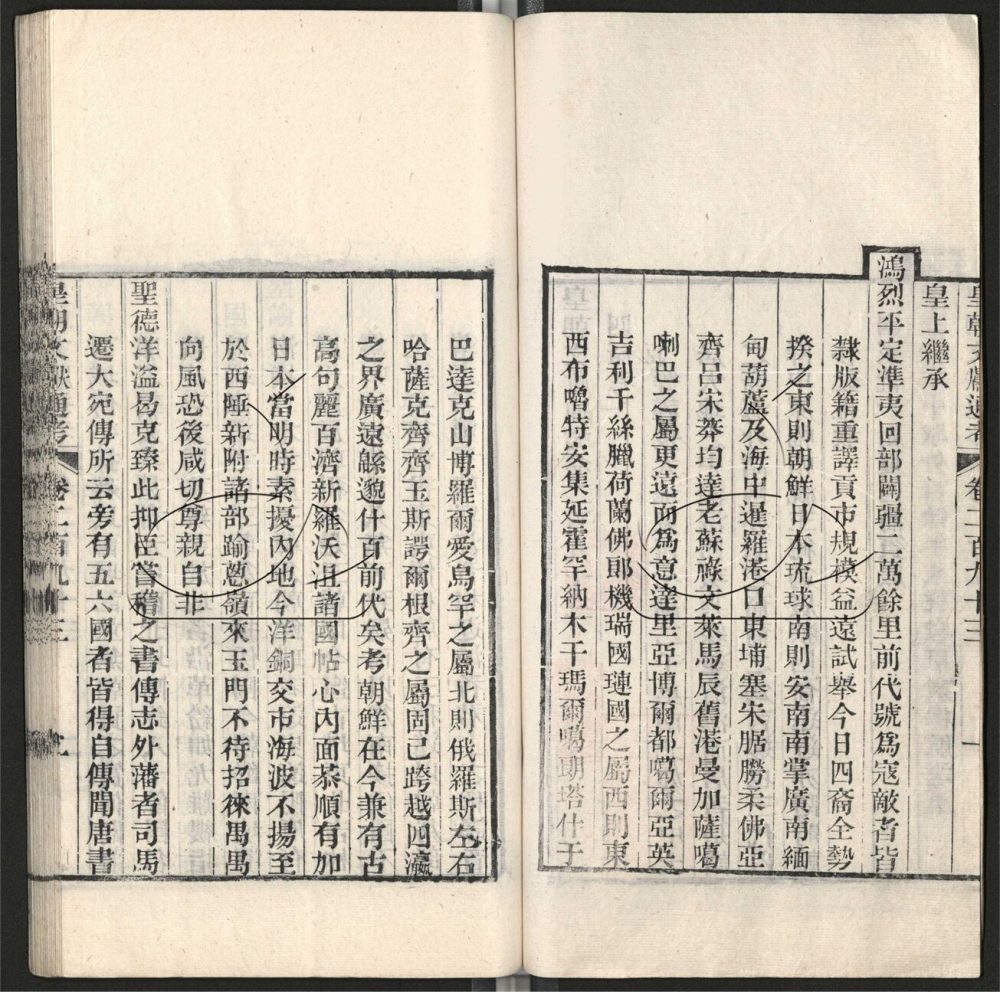 皇朝文獻通考 卷二百九十三 一
皇上繼承
鴻烈平定準夷回部闢疆二萬餘里前代號爲寇敵者皆
隸版籍重譯貢市規模益遠試舉今日四裔全勢
揆之東則朝鮮日本琉球南則安南南掌廣南緬
甸葫蘆及海中暹羅港口東埔塞朱腒朥柔佛亞
齊呂宋莽均達老蘇祿文萊馬辰舊港曼加薩噶
喇巴之屬更遠而爲意達里亞博爾都噶爾亞英
吉利千絲臘荷蘭佛郎機瑞國璉國之屬西則東
西布嚕特安集延霍罕納木干瑪爾噶朗塔什干
巴達克山博羅爾愛烏罕之屬北則俄羅斯左右
哈薩克齊齊玉斯諤爾根齊之屬固已跨越四瀛
之界廣遠緜邈什百前代矣考朝鮮在今兼有古
高句麗百濟新羅沃沮諸國帖心內面恭順有加
日本當明時素擾內地今洋銅交市海波不揚至
於西陲新附諸部踰蔥嶺來玉門不待招徠萬萬
向風恐後咸切尊親自非
聖德洋溢曷克臻此抑臣嘗稽之書傳志外藩者司馬
遷大宛傳所云旁有五六國者皆得自傳聞唐書
皇朝文獻通考 卷二百九十三